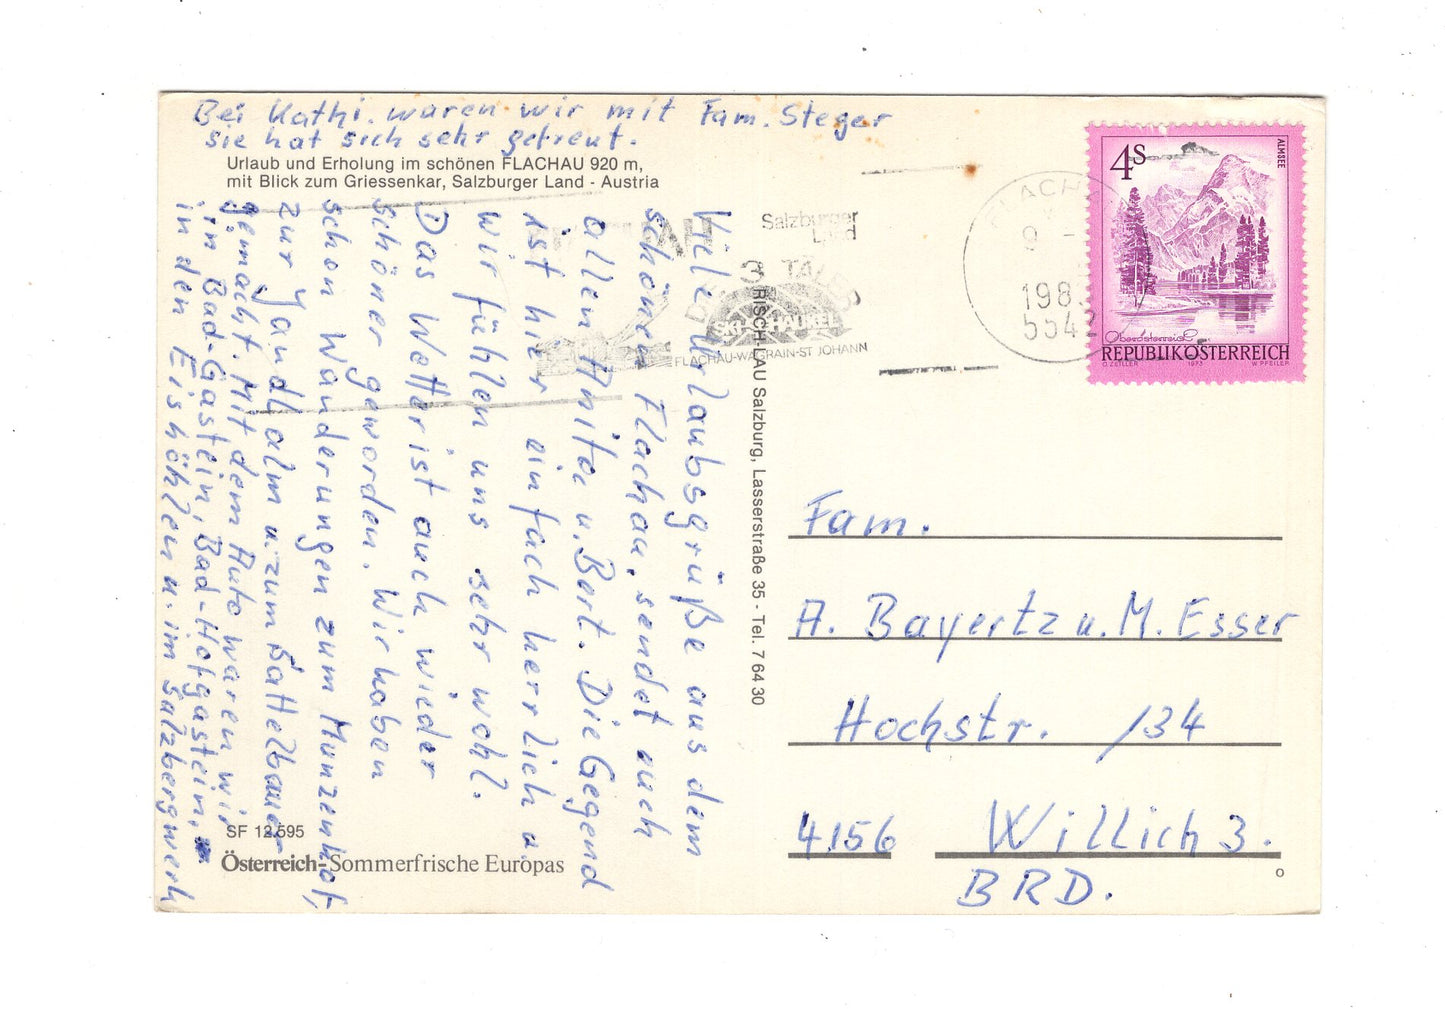 Bei Kathi. waren wir mit Fam. Steger
sie hat sich sehr gefreut.
Urlaub und Erholung im schönen FLACHAU 920 m,
mit Blick zum Griessenkar, Salzburger Land - Austria
Viele Urlaubsgrüße aus dem
schönen Flachau, sendet euch
allen Anita u. Bert. Die Gegend
ist hier einfach herrlich u.
wir fühlen uns sehr wohl.
Das Wetter ist auch wieder
schöner geworden. Wir haben
schon Wanderungen zum Munzenhof,
zur Jandlalm u. zum Sattelbauer
gemacht. Mit dem Auto waren wir
in Bad-Gastein, Bad-Hofgastein,
in den Eishöhlen u. im Salzbergwerk
SF 12.595
Österreich-Sommerfrische Europas
RISCH-LAU Salzburg, Lasserstraße 35 - Tel. 7 64 30
FLACHAU
Salzburger
Land
3 TÄLER
SKI SCHAUKEL
FLACHAU-WAGRAIN-ST JOHANN
FLACH
9 -
198
5542
4S
ALMSEE
Oberösterreich
REPUBLIK ÖSTERREICH
O. ZEILLER 1973 W. PFEILER
Fam.
A. Bayertz u. M. Esser
Hochstr. 134
4156 Willich 3.
BRD.
o